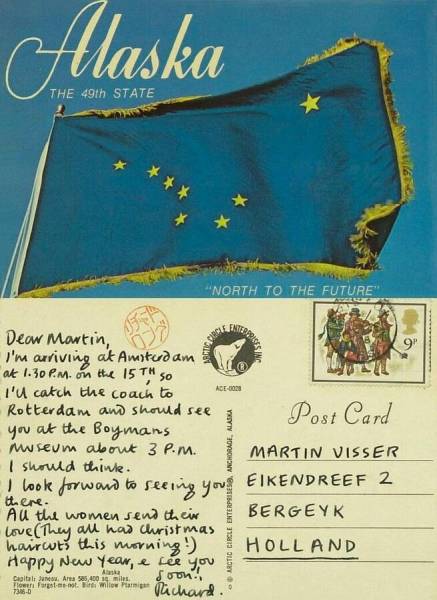 Alaska
THE 49th STATE
"NORTH TO THE FUTURE"
Dear Martin,
I'm arriving at Amsterdam
at 1.30 P.M. on the 15TH, so
I'll catch the coach to
Rotterdam and should see
you at the Boymans
Museum about 3 P.M.
I should think.
I look forward to seeing you
there.
All the women send their
love (They all had Christmas
haircuts this morning!)
Happy New Year, & see you
soon!,
Richard.
Alaska
Capital: Juneau. Area 586,400 sq. miles.
Flower: Forget-me-not. Bird: Willow Ptarmigan
7346-D
ARCTIC CIRCLE ENTERPRISES INC.
ACE-0028
© ARCTIC CIRCLE ENTERPRISES, ANCHORAGE, ALASKA
9P
Post Card
MARTIN VISSER
EIKENDREEF 2
BERGEYK
HOLLAND